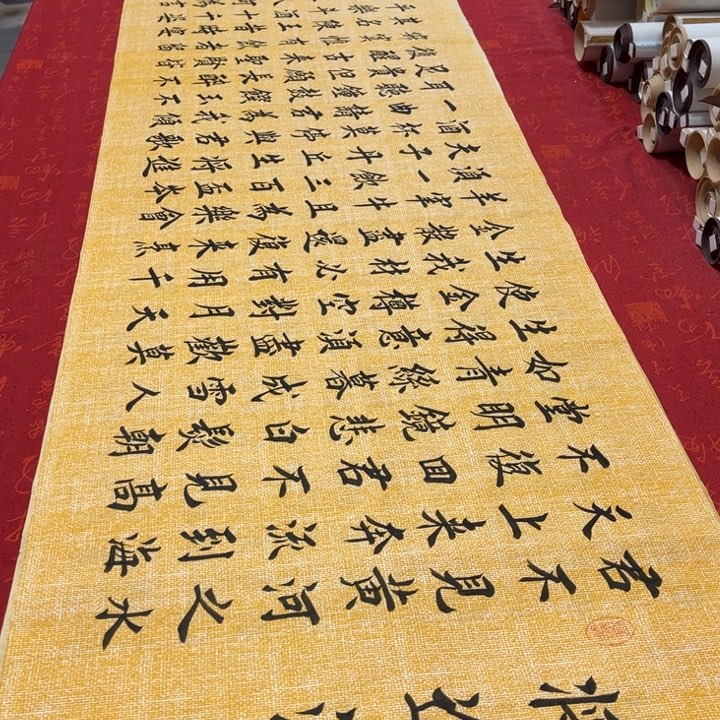 將進酒
君不見黃河之水
天上來奔流到海
不復回君不見高
堂明鏡悲白髮朝
如青絲暮成雪人
生得意須盡歡莫
使金樽空對月天
生我材必有用千
金散盡還復來烹
羊宰牛且為樂會
須一飲三百盃岑
夫子丹丘生將進
酒杯莫停與君歌
一曲請君為我傾
耳聽鐘鼓饌玉不
足貴但願長醉不
復醒古來聖賢皆
寂寞惟有飲者留
其名陳王昔時宴
平樂